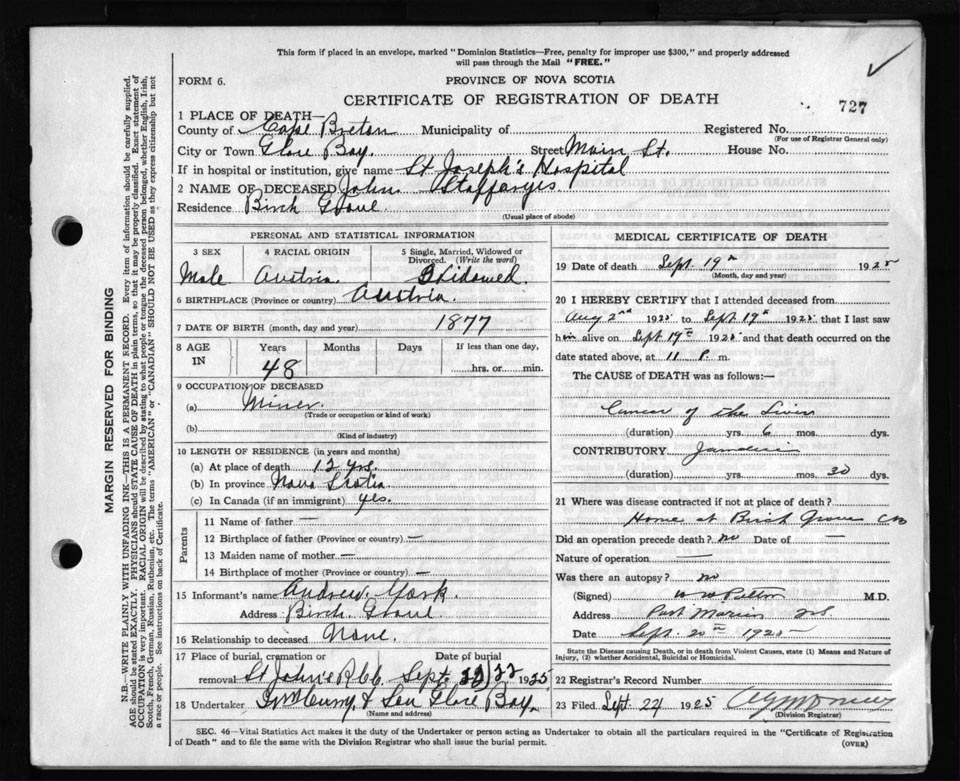 This form if placed in an envelope, marked "Dominion Statistics—Free, penalty for improper use $300," and properly addressed
will pass through the Mail "FREE."
FORM 6.
PROVINCE OF NOVA SCOTIA
CERTIFICATE OF REGISTRATION OF DEATH
727
1 PLACE OF DEATH—
County of Cape Breton Municipality of Registered No.
(For use of Registrar General only)
City or Town Glace Bay. Street Main St. House No.
If in hospital or institution, give name St Joseph's Hospital
2 NAME OF DECEASED John Staffaryis
Residence Birch Grove
(Usual place of abode)
PERSONAL AND STATISTICAL INFORMATION
3 SEX 4 RACIAL ORIGIN 5 Single, Married, Widowed or Divorced. (Write the word)
Male Austria. Widowed.
6 BIRTHPLACE (Province or country) Austria.
7 DATE OF BIRTH (month, day and year) 1877
8 AGE IN Years Months Days If less than one day,
48 hrs. or min.
9 OCCUPATION OF DECEASED
(a) Miner
(Trade or occupation or kind of work)
(b)
(Kind of industry)
10 LENGTH OF RESIDENCE (in years and months)
(a) At place of death 12 yrs.
(b) In province Nova Scotia
(c) In Canada (if an immigrant) yes.
Parents
11 Name of father —
12 Birthplace of father (Province or country) —
13 Maiden name of mother —
14 Birthplace of mother (Province or country) —
15 Informant's name Andrew York
Address Birch Grove
16 Relationship to deceased None.
17 Place of burial, cremation or Date of burial
removal St John's Sept 22 1925
18 Undertaker & Son Glace Bay
(Name and address)
MEDICAL CERTIFICATE OF DEATH
19 Date of death Sept 19th 1925
(Month, day and year)
20 I HEREBY CERTIFY that I attended deceased from
Aug 2nd 1925 to Sept 19th 1925 that I last saw
him alive on Sept 19th 1925 and that death occurred on the
date stated above, at 11 P. m.
The CAUSE of DEATH was as follows:—
Cancer of the Liver
(duration) yrs. 6 mos. dys.
CONTRIBUTORY Jaundice
(duration) yrs. mos. 30 dys.
21 Where was disease contracted if not at place of death?
Home at Birch Grove CB
Did an operation precede death? no Date of —
Nature of operation —
Was there an autopsy? no
(Signed) M.D.
Address Port Morien NS
Date Sept. 20th 1925
State the Disease causing Death, or in death from Violent Causes, state (1) Means and Nature of Injury, (2) whether Accidental, Suicidal or Homicidal.
22 Registrar's Record Number
23 Filed Sept 22 1925
(Division Registrar)
SEC. 46—Vital Statistics Act makes it the duty of the Undertaker or person acting as Undertaker to obtain all the particulars required in the "Certificate of Registration
of Death" and to file the same with the Division Registrar who shall issue the burial permit.
(OVER)
MARGIN RESERVED FOR BINDING
N.B.—WRITE PLAINLY WITH UNFADING INK—THIS IS A PERMANENT RECORD. Every item of information should be carefully supplied.
AGE should be stated EXACTLY. PHYSICIANS should STATE CAUSE OF DEATH in plain terms, so that it may be properly classified. Exact statement of
OCCUPATION is very important. RACIAL ORIGIN will be described by stating to what people or tongue the deceased person belonged, whether English, Irish,
Scotch, French, German, Russian, Ruthenian, etc. The terms "AMERICAN" or "CANADIAN" SHOULD NOT BE USED as they express citizenship but not
a race or people. See instructions on back of Certificate.